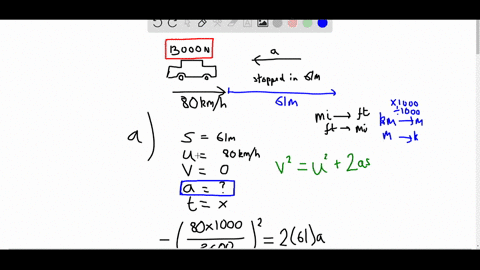 13000N
a
stopped in 61m
80km/h
61m
mi → ft
ft → mi
×1000
÷1000
km → m
m → k
a)
S = 61m
u = 80km/h
V = 0
a = ?
t = x
V² = u² + 2as
- (80×1000/3600)² = 2(61)a